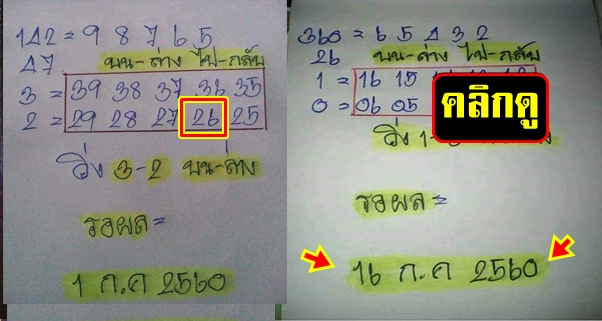 142 = 9 8 7 6 5
47
บน-ล่าง ไป-กลับ
3 = 39 38 37 36 35
2 = 29 28 27 26 25
วิ่ง 3-2 บน-ล่าง
รอผล=
1 ก.ค 2560
360 = 6 5 4 3 2
26
บน-ล่าง ไป-กลับ
1 = 16 15
0 = 06 05
คลิกดู
วิ่ง 1-
รอผล=
16 ก.ค 2560